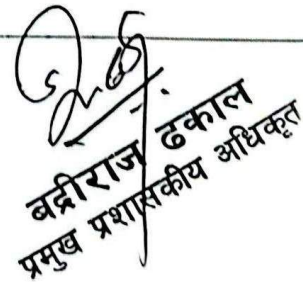 बद्रीराज ढकाल
प्रमुख प्रशासकीय अधिकृत